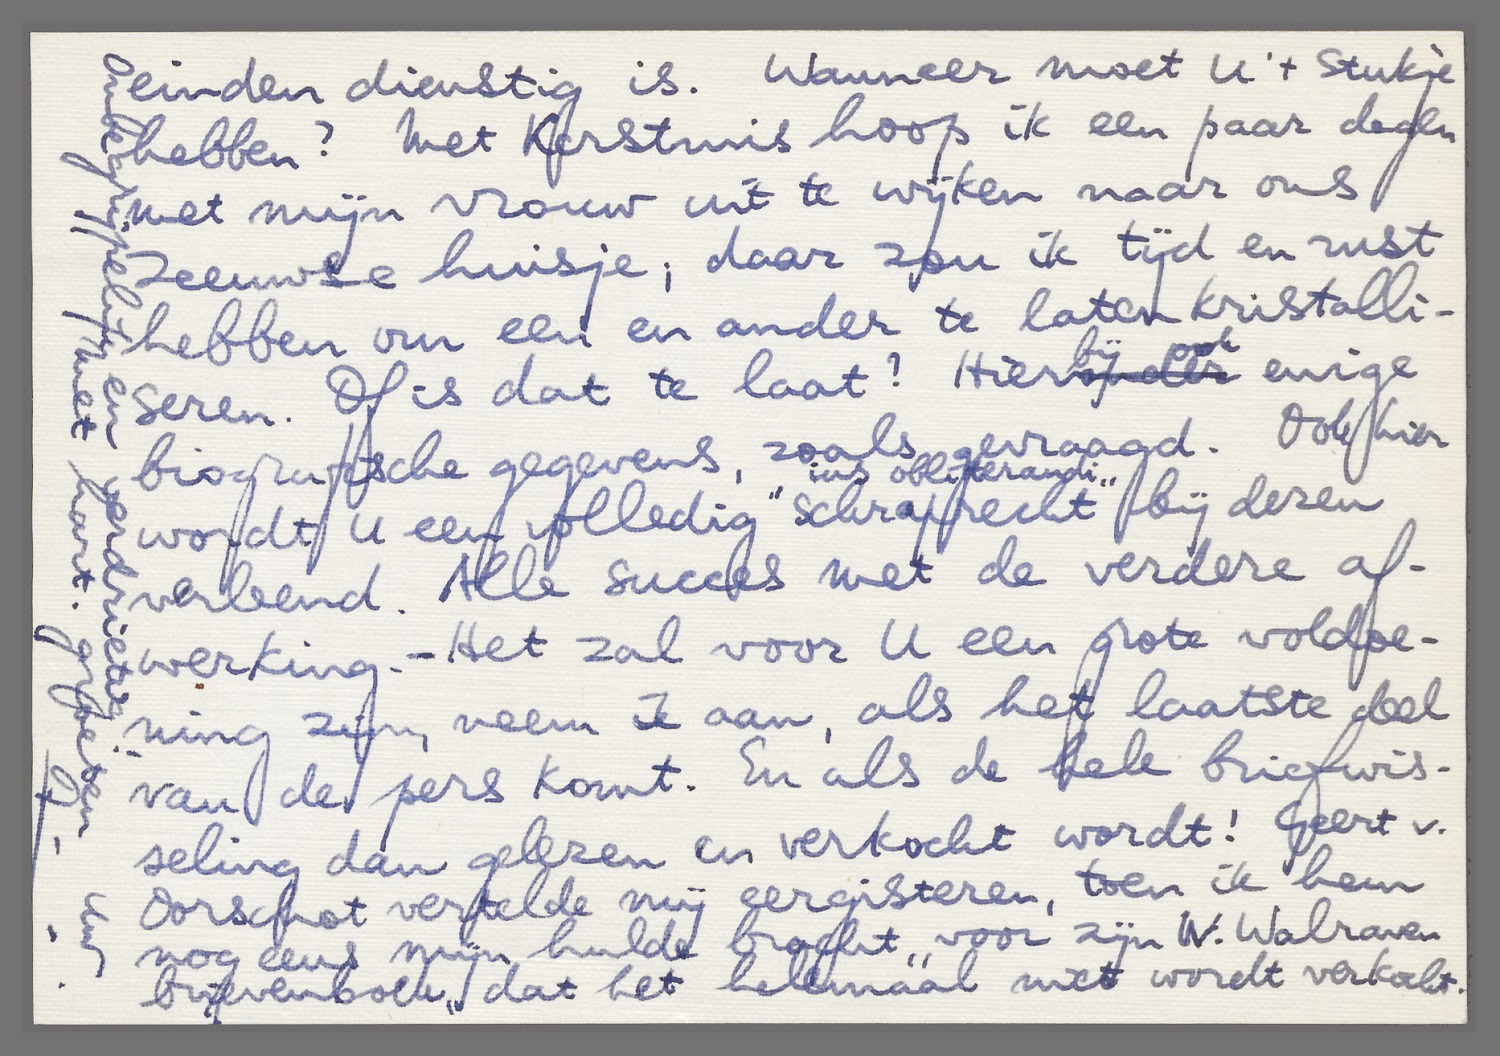 einden dienstig is. Wanneer moet U 't stukje
hebben? Met Kerstmis hoop ik een paar dagen
met mijn vrouw uit te wijken naar ons
Zeeuwse huisje; daar zou ik tijd en rust
hebben om een en ander te laten kristalli-
seren. Of is dat te laat? Hierbij ook enige
biografische gegevens, zoals gevraagd. Ook hier
"ius oblitterandi"
wordt U een volledig "schraprecht" bij dezen
verleend. Alle succes met de verdere af-
werking. – Het zal voor U een grote voldoe-
ning zijn, neem ik aan, als het laatste deel
van de pers komt. En als de hele briefwis-
seling dan gelezen en verkocht wordt! Geert v.
Oorschot vertelde mij eergisteren, toen ik hem
nog eens mijn hulde bracht, voor zijn W. Walraven
brievenboek, dat het helemaal niet wordt verkocht.
Onbegrijpelijk en verdrietig.
met hart. groeten